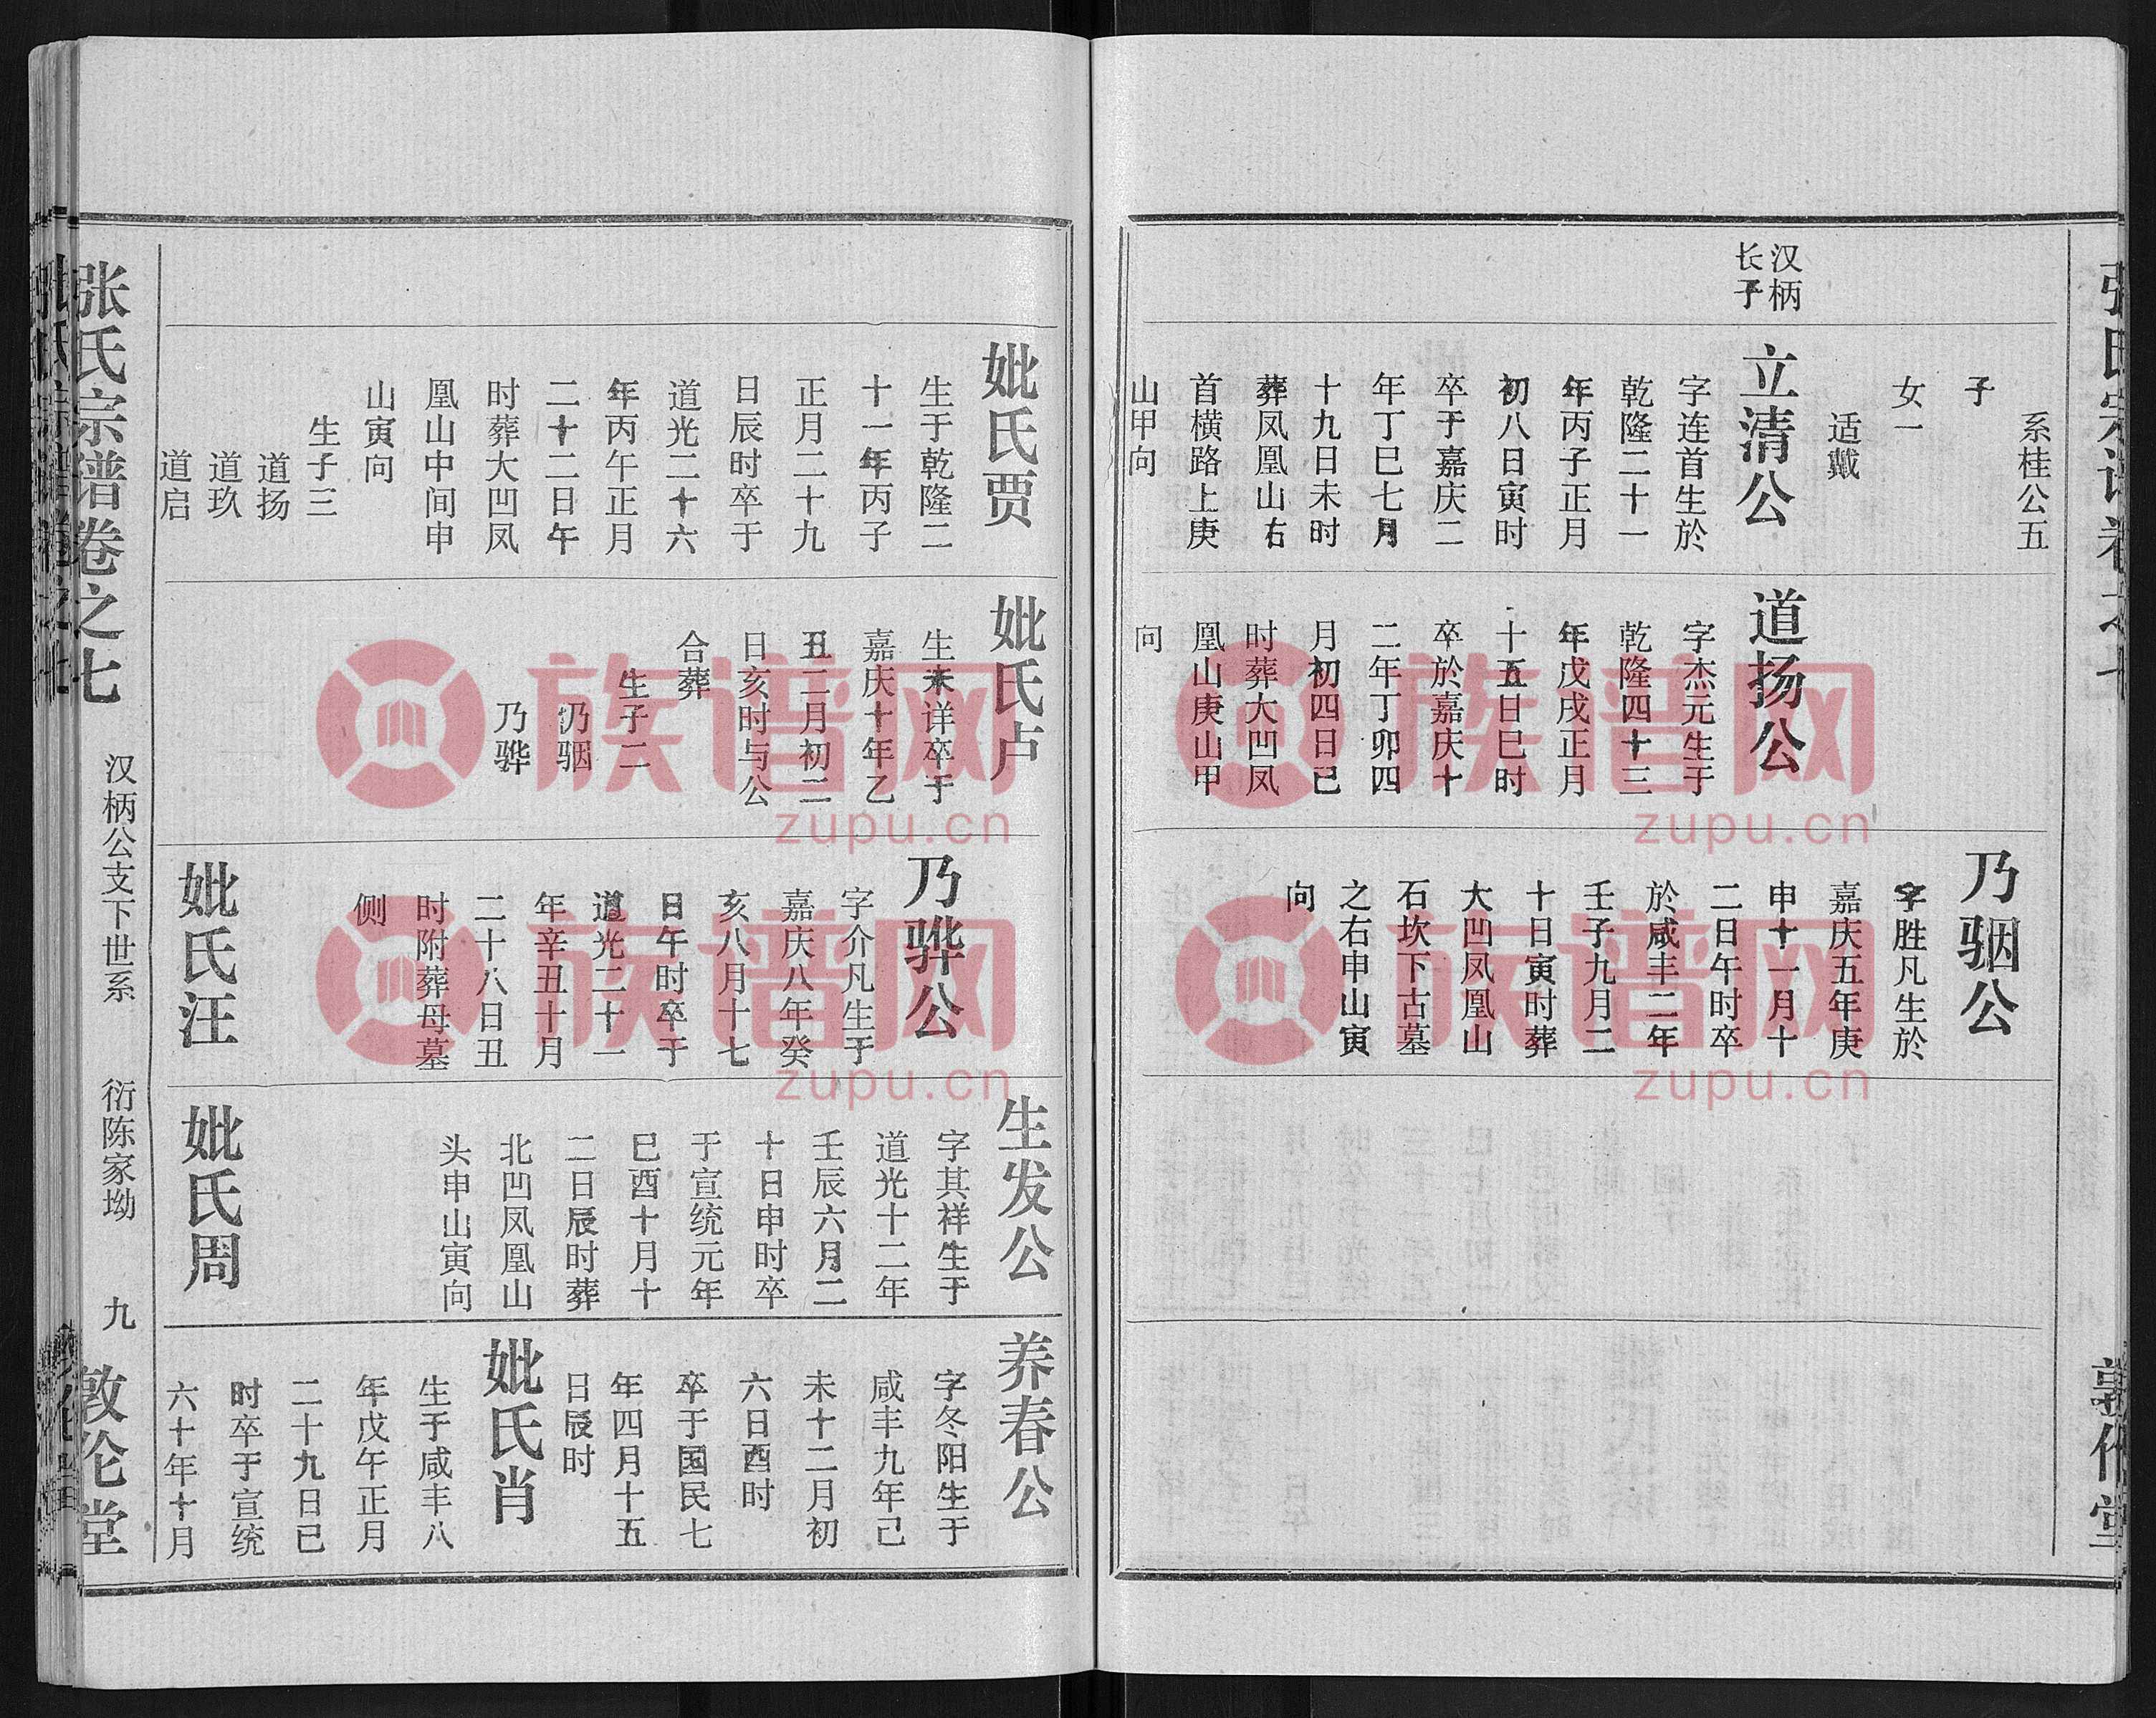 张氏宗谱卷之七
敦伦堂
汉柄
长子
系桂公五
子
女一
适戴
立清公
字连首生於
乾隆二十一
年丙子正月
初八日寅时
卒于嘉庆二
年丁巳七月
十九日未时
葬凤凰山右
首横路上庚
山甲向
道扬公
字杰元生于
乾隆四十三
年戊戌正月
十五日巳时
卒於嘉庆十
二年丁卯四
月初四日已
时葬大凹凤
凰山庚山甲
向
乃骃公
字胜凡生於
嘉庆五年庚
申十一月十
二日午时卒
於咸丰二年
壬子九月二
十日寅时葬
大凹凤凰山
石坎下古墓
之右申山寅
向
妣氏贾
生于乾隆二
十一年丙子
正月二十九
日辰时卒于
道光二十六
年丙午正月
二十二日午
时葬大凹凤
凰山中间申
山寅向
生子三
道扬
道玖
道启
妣氏卢
生未详卒于
嘉庆十年乙
丑二月初二
日亥时与公
合葬
生子二
乃骃
乃骅
乃骅公
字介凡生于
嘉庆八年癸
亥八月十七
日午时卒于
道光二十一
年辛丑十月
二十八日丑
时附葬母墓
侧
妣氏汪
生发公
字其祥生于
道光十二年
壬辰六月二
十日申时卒
于宣统元年
巳酉十月十
二日辰时葬
北凹凤凰山
头申山寅向
妣氏周
养春公
字冬阳生于
咸丰九年己
未十二月初
六日酉时
卒于国民七
年四月十五
日辰时
妣氏肖
生于咸丰八
年戊午正月
二十九日已
时卒于宣统
六十年十月
张氏宗谱卷之七
汉柄公支下世系
衍陈家坳
九
敦伦堂
族谱网
zupu.cn
族谱网
zupu.cn
族谱网
zupu.cn
族谱网
zupu.cn